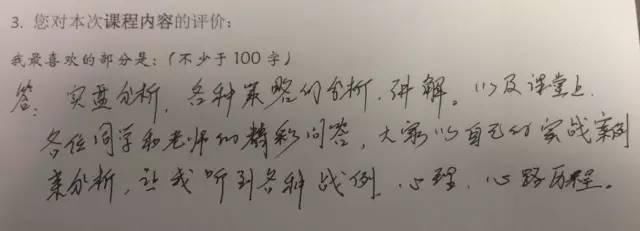 3. 您对本次课程内容的评价：
我最喜欢的部分是：（不少于 100 字）
答：实盘分析，各种策略的分析，讲解。以及课堂上，
各位同学和老师的精彩问答，大家以自己的实战案例
来分析，让我听到各种战例，心理，心路历程。